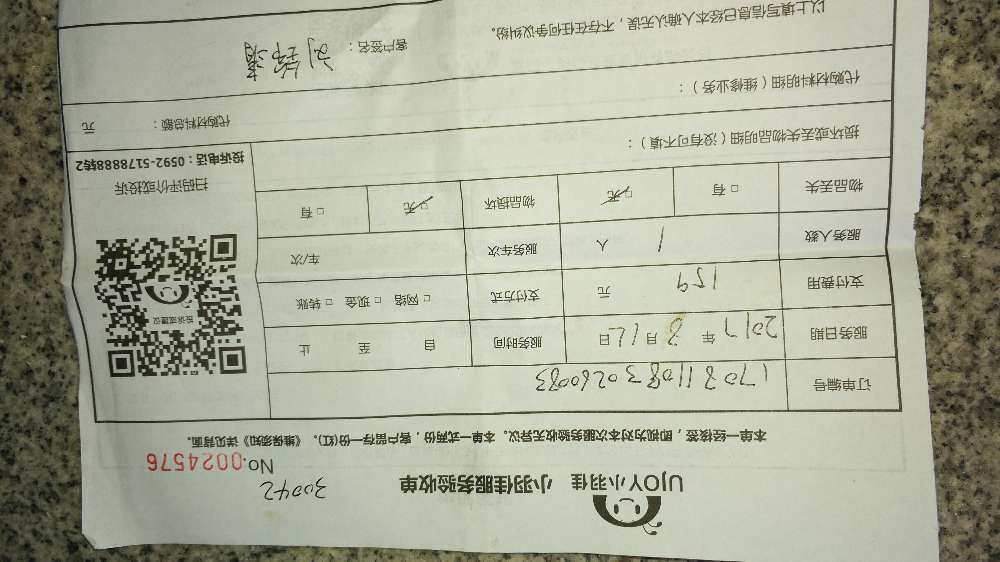 UJOY小羽佳 小羽佳服务验收单
30042
No.0024576
本单一经接签，即视为对本次服务验收无异议。本单一式两份，客户留存一份(红)。《维保须知》详见背面。
订单编号 17081108302
服务日期 2017 年 8 月 12 日 服务时间 自 至 止
支付费用 159 元 支付方式 □ 网络 □ 现金 □ 转账
服务人数 1 人 服务车次 车/次
物品丢失 □ 有 □ 无 物品损坏 □ 无 □ 有
投诉或建议
扫码评价或投诉
投诉电话：0592-5178888转2
损坏或丢失物品明细（没有可不填）：
代购材料明细（维修业务）：
代购材料总额： 元
以上填写信息已经本人确认无误，不存在任何争议纠纷。
客户签名：